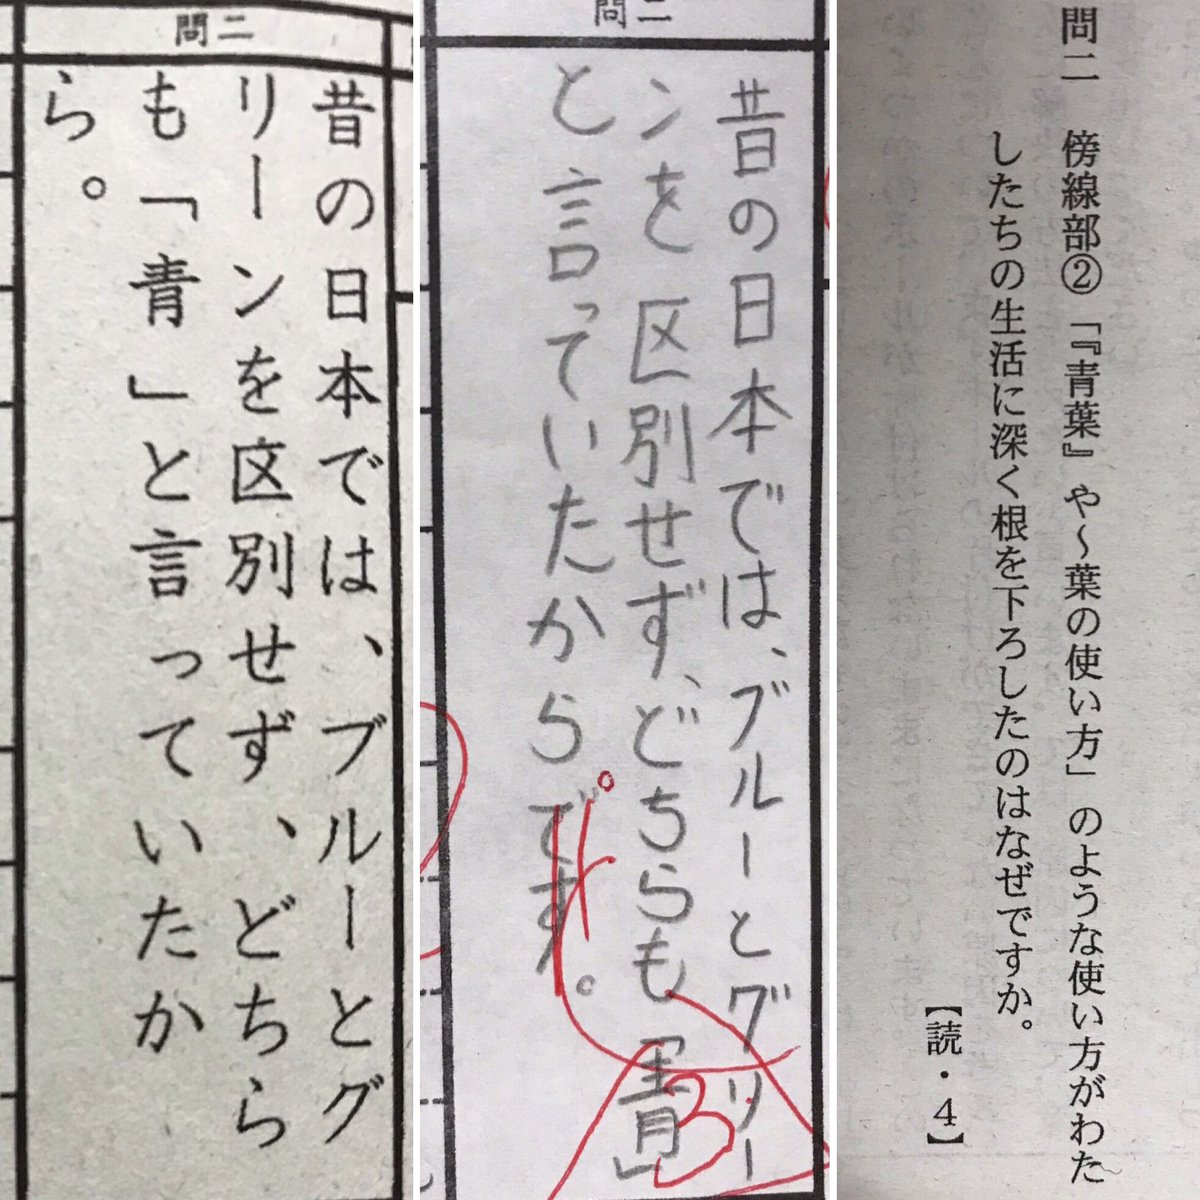 問二
昔の日本では、ブルーとグ
リーンを区別せず、どちら
も「青」と言っていたか
ら。
問二
昔の日本では、ブルーとグリー
ンを区別せず、どちらも「青」
と言っていたからです。
。
3
問二 傍線部②「『青葉』や～葉の使い方」のような使い方がわた
したちの生活に深く根を下ろしたのはなぜですか。
【読・4】